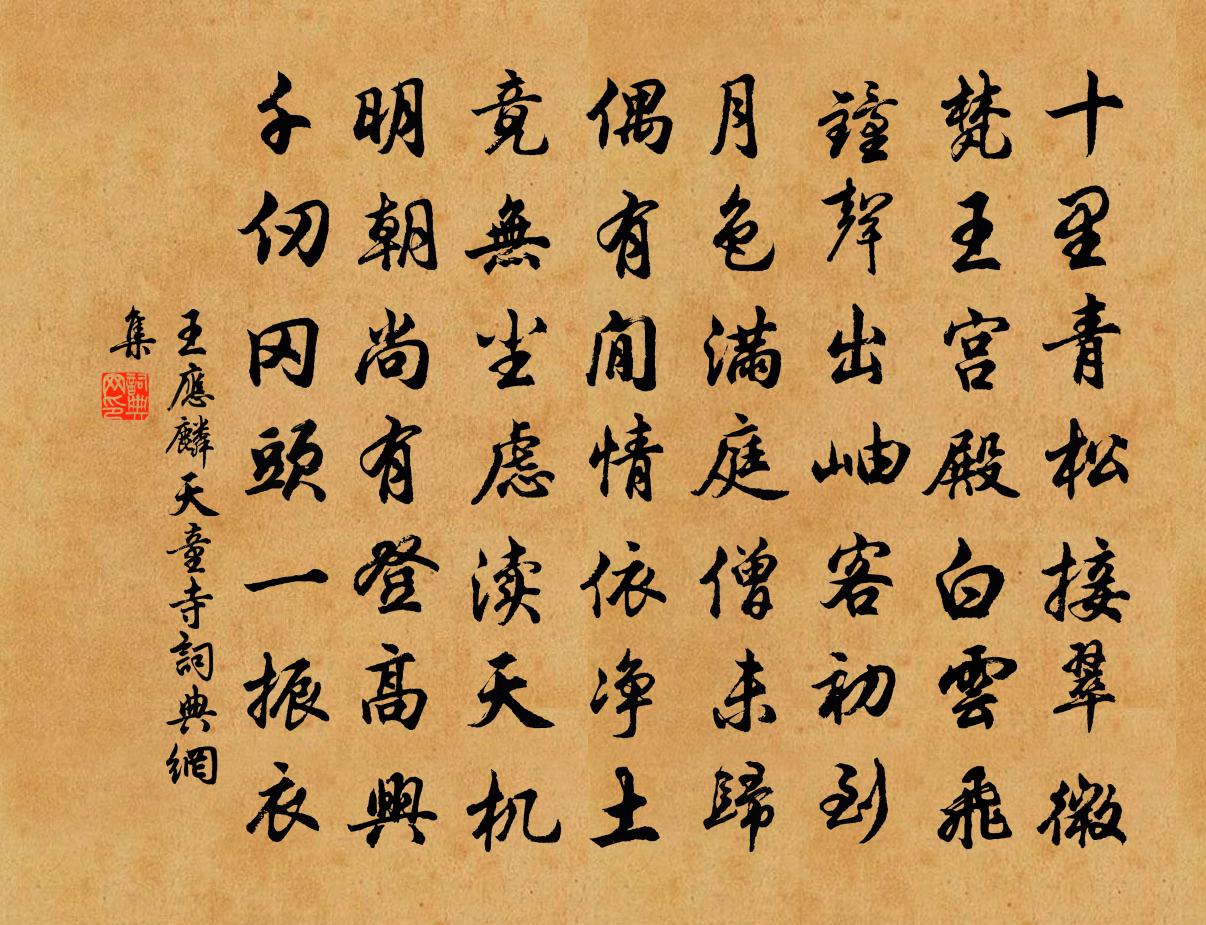 十里青松接翠微
梵王宫殿白雲飛
鐘聲出岫客初到
月色滿庭僧未歸
偶有閒情依净土
竟無尘慮渎天机
明朝尚有登高興
千仞冈頭一振衣
王應麟天童寺詞典網
集
詞典
网印